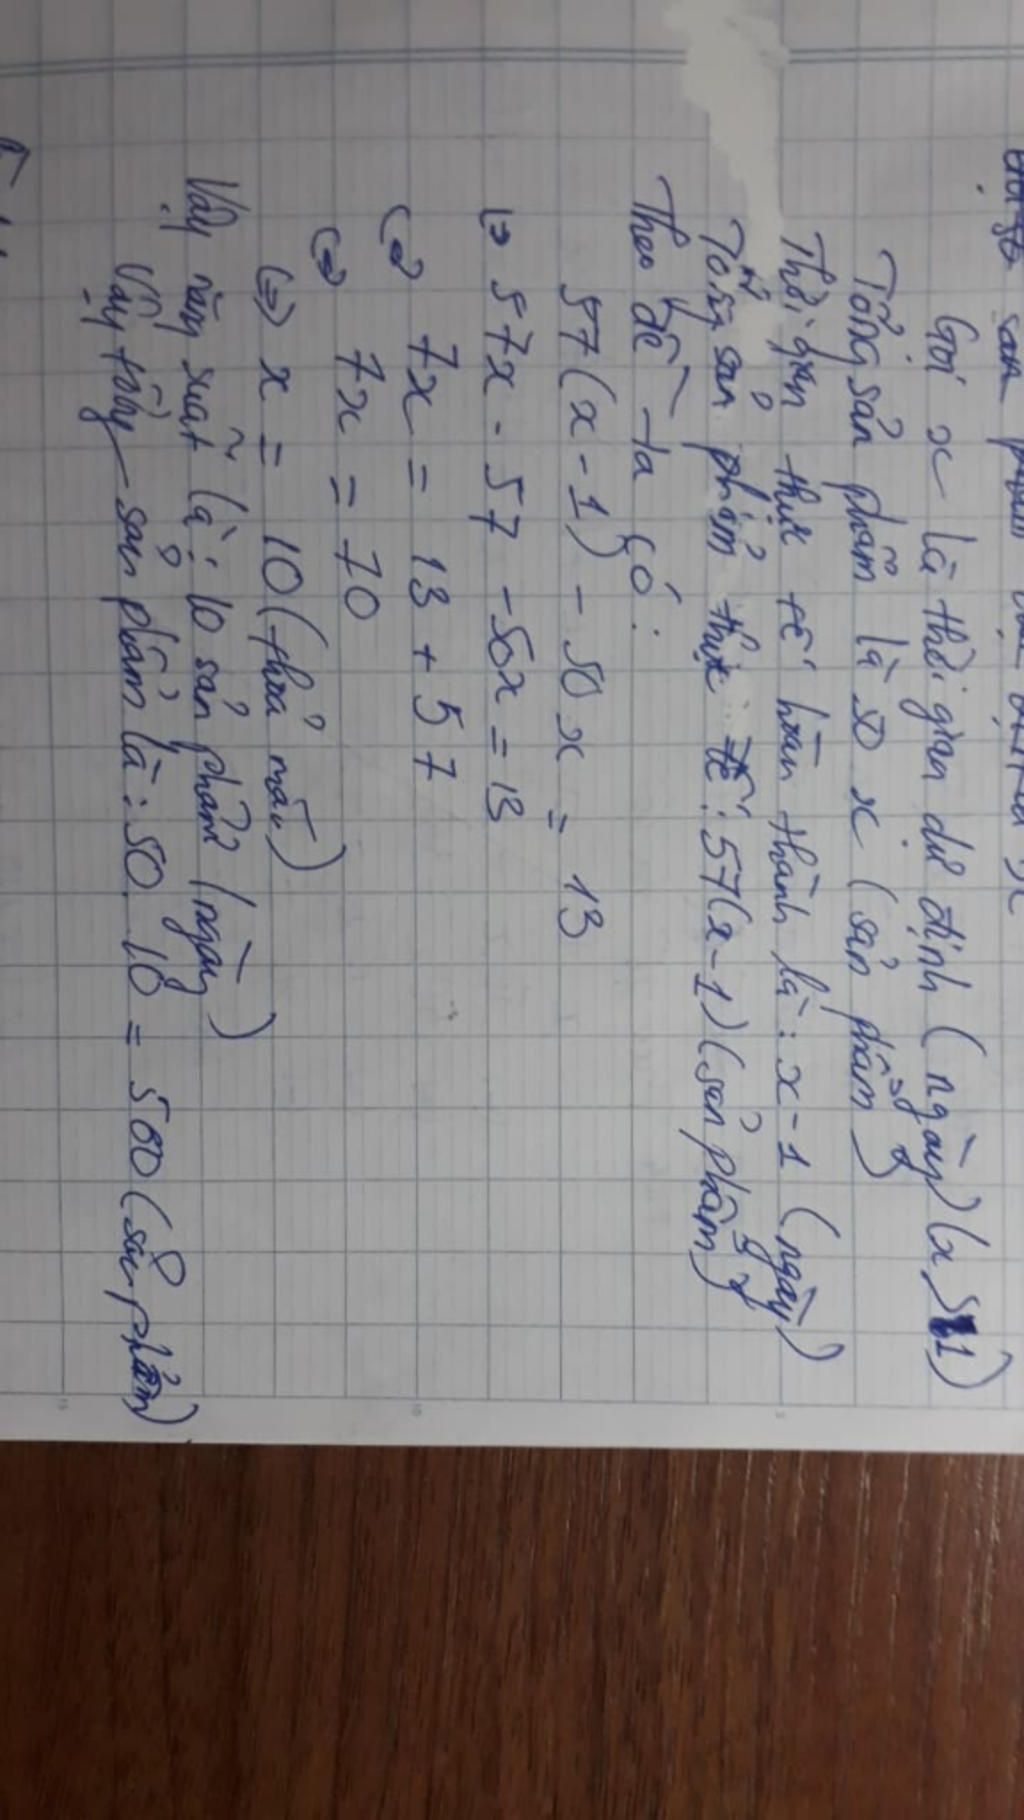 Gọi x là thời gian dự định (ngày) (x > 1)
Tổng sản phẩm là 50 x (sản phẩm)
Thời gian thực tế hoàn thành là : x - 1 (ngày)
Tổng sản phẩm thực tế : 57(x - 1) (sản phẩm)
Theo đề ta có :
57 (x - 1) - 50 x = 13
57x - 57 - 50x = 13
7x = 13 + 57
7x = 70
x = 10 (thỏa mãn)
Vậy năng suất là : 10 sản phẩm (ngày)
Vậy tổng sản phẩm là : 50 . 10 = 500 (sản phẩm)